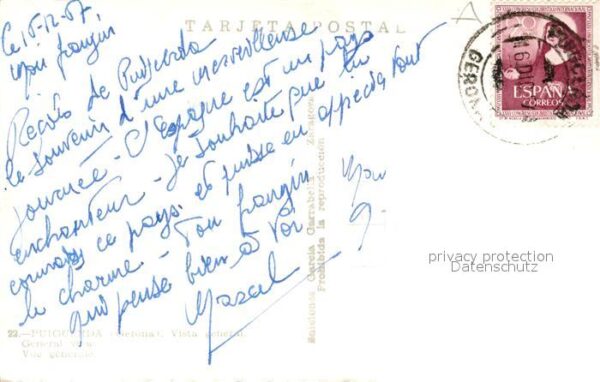 TARJETA POSTAL
Le 15-12-57
Mon frangin
Reçois de Puigcerda
le souvenir d'une merveilleuse
journée - L'Espagne est un pays
enchanteur - Je souhaite que tu
connaisses ce pays et puisse en apprécier tout
le charme - Ton frangin
qui pense bien à toi
Marcel
22.-PUIGCERDA (Gerona). Vista general.
General view.
Vue générale.
Ediciones García Garrabella - Zaragoza
Prohibida la reproducción
ESPAÑA
CORREOS
GERONA
privacy protection
Datenschutz